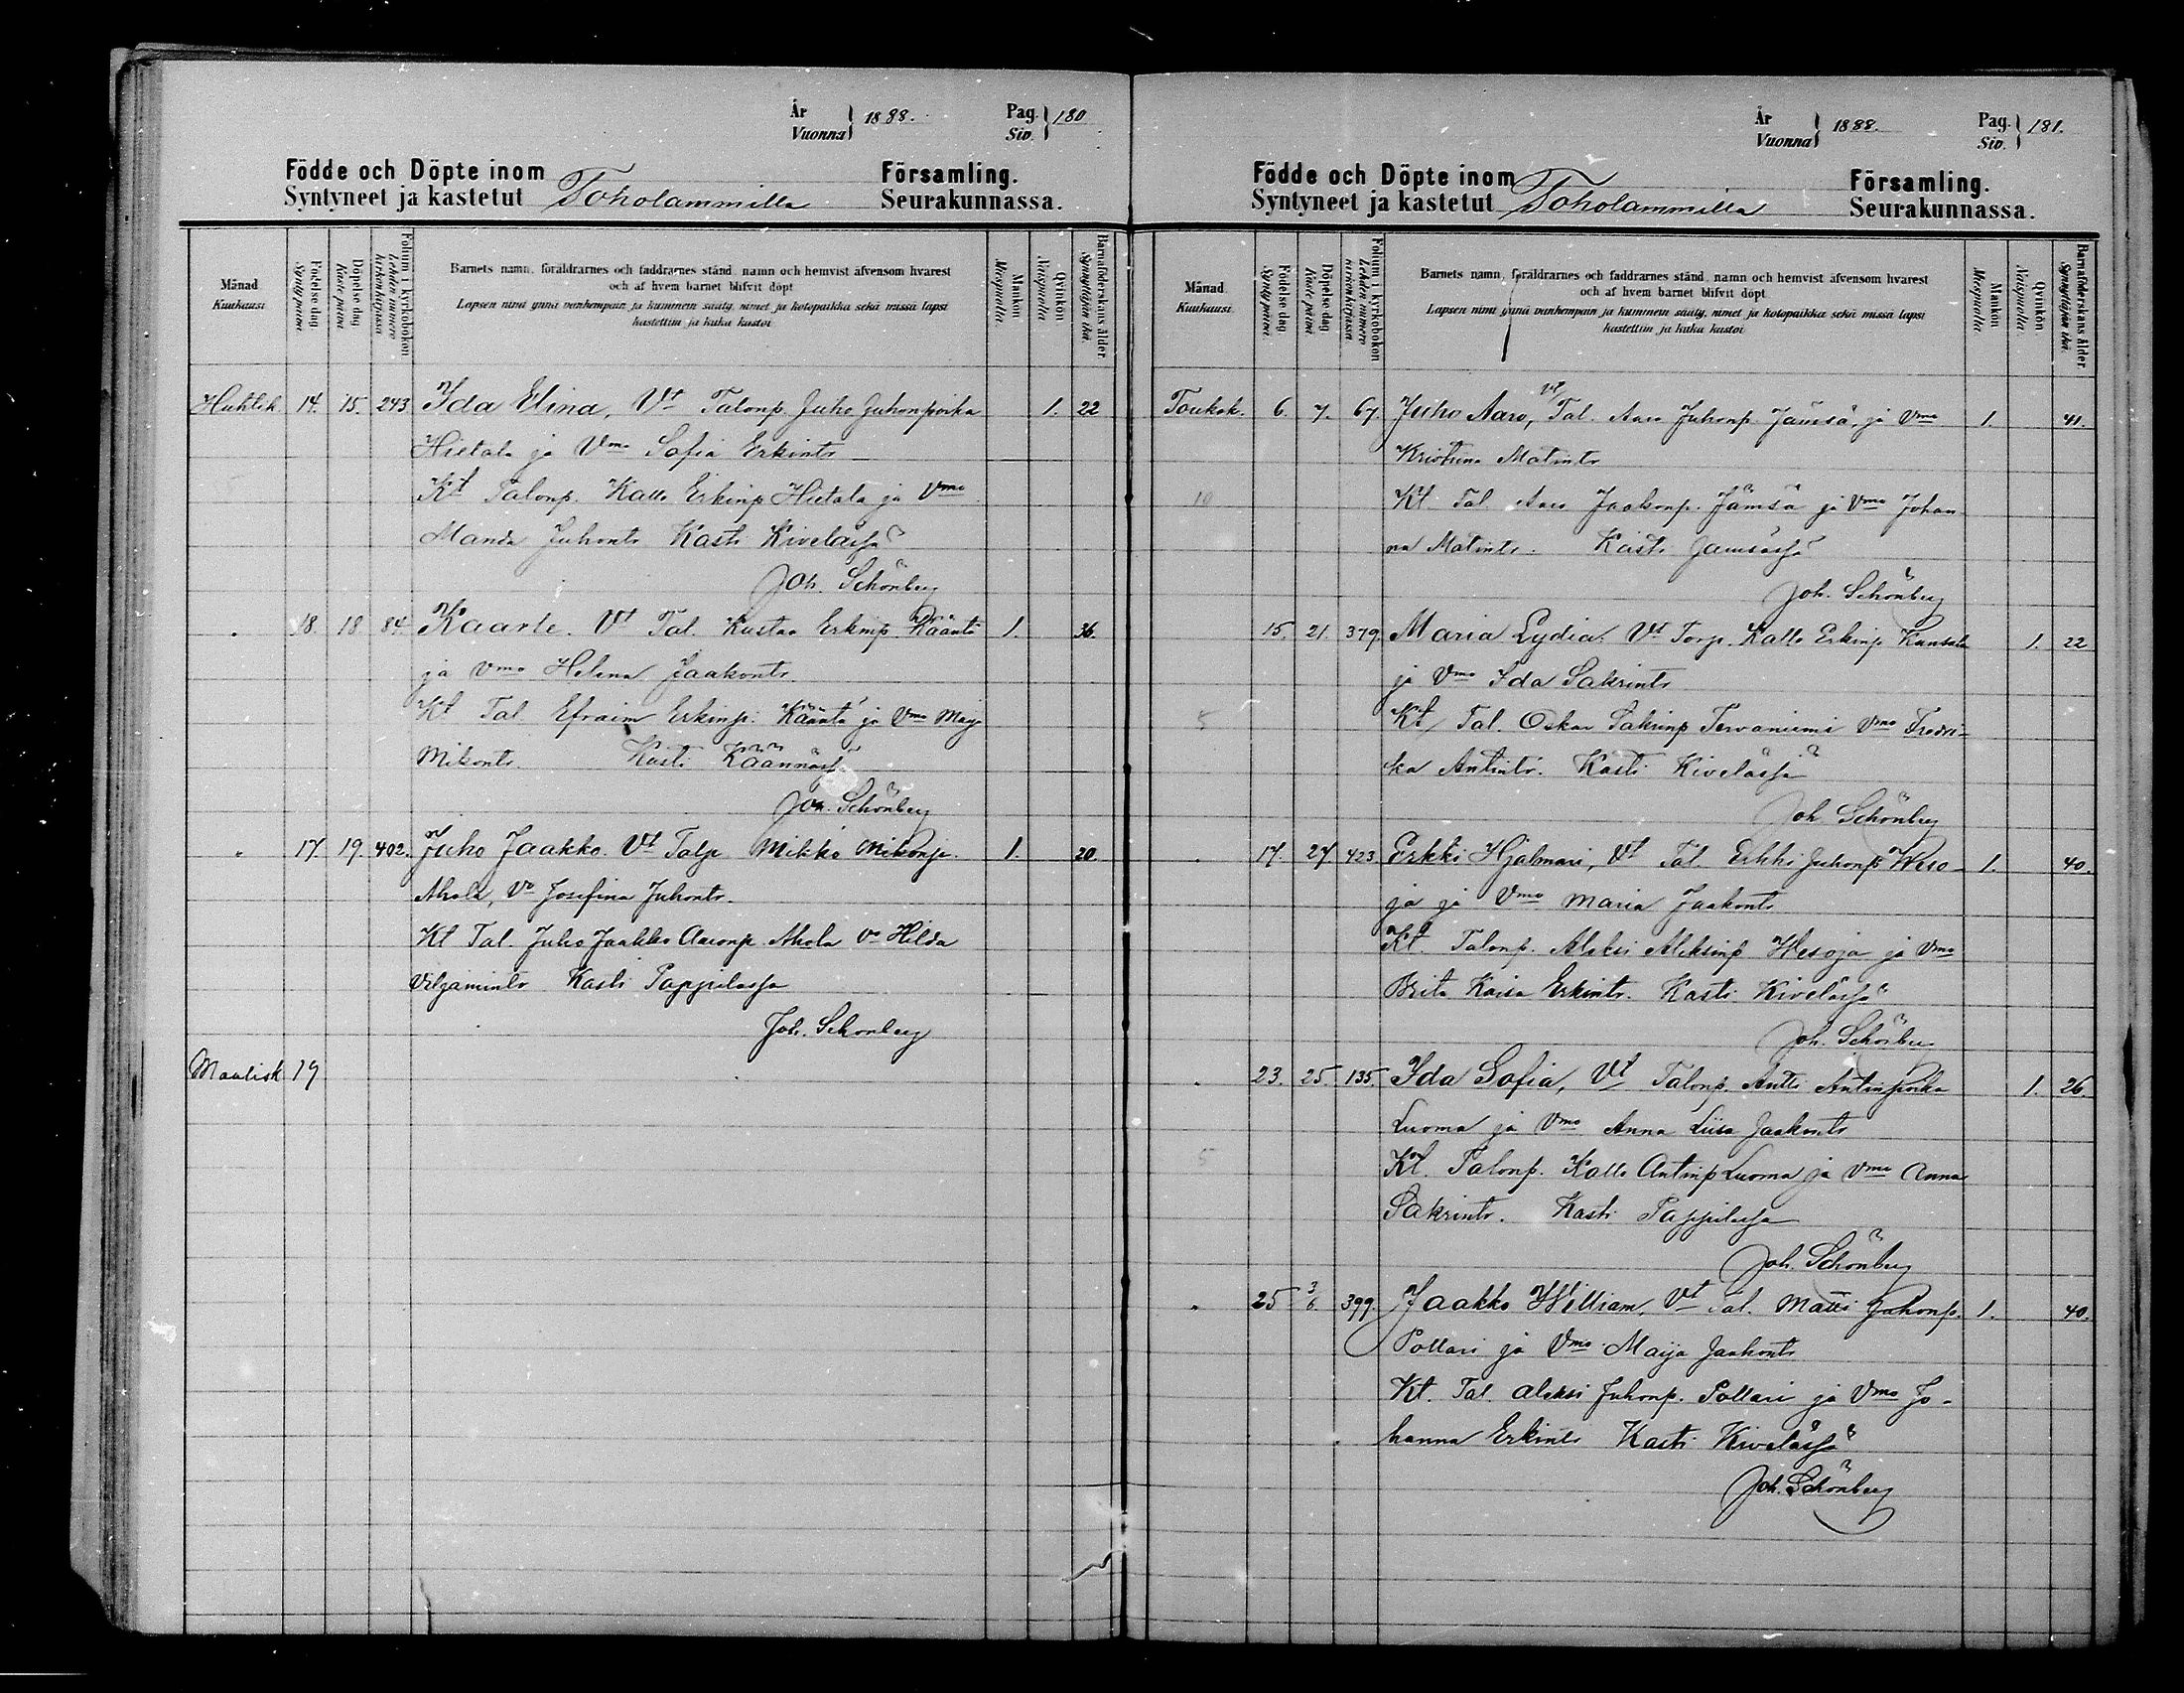 År
Vuonna } 1888.
Pag.
Siv. } 180
Födde och Döpte inom
Syntyneet ja kastetut Toholammilla
Församling.
Seurakunnassa.
Månad Kuukausi
Födelse dag Syntypäivä
Döpelse dag Kaste päivä
Folium i kyrkoboken Lehden numero kirkonkirjassa
Barnets namn, föräldrarnes och faddrarnes stånd, namn och hemvist äfvensom hvarest
och af hvem barnet blifvit döpt
Lapsen nimi ynnä vanhempain ja kummein sääty, nimet ja kotopaikka sekä missä lapsi
kastettiin ja kuka kastoi
Mankön Miespuolia
Qvinkön Naispuolia
Barnaföderskans ålder Synnyttäjän ikä
Huhtik. 14. 15. 243. Ida Elina, Vt Talonp. Juho Juhonpoika 1. 22
Hietala ja Vmo Sofia Erkintr
Kt Talonp. Kalle Erkinp Hietala ja Vmo
Manda Juhontr Kasti Kivelässä
Joh. Schönberg
" 18. 18 84 Kaarle. Vt Tal. Kustaa Erkinp Kääntä 1. 36.
ja Vmo Helena Jaakontr
Kt Tal Efraim Erkinp. Kääntä ja Vmo Maija
Mikontr. Kasti Käännäss
Joh. Schönberg
" 17. 19. 402. Juho Jaakko. Vt Talp Mikko Mikonp. 1. 20
Ahola, Vo Josefina Juhontr.
Kt Tal. Juho Jaakko Aaronp. Ahola Vo Hilda
Viljamintr Kasti Pappilassa
Joh. Schönberg
Maalisk 19
År
Vuonna } 1888.
Pag.
Siv. } 181.
Födde och Döpte inom
Syntyneet ja kastetut Toholammilla
Församling.
Seurakunnassa.
Månad Kuukausi
Födelse dag Synty päivä
Döpelse dag Kaste päivä
Folium i kyrkoboken Lehden numero kirkonkirjassa
Barnets namn, föräldrarnes och faddrarnes stånd, namn och hemvist äfvensom hvarest
och af hvem barnet blifvit döpt
Lapsen nimi ynnä vanhempain ja kummein sääty, nimet ja kotopaikka sekä missä lapsi
kastettiin ja kuka kastoi
Mankön Miespuolia
Qvinkön Naispuolia
Barnaföderskans ålder Synnyttäjän ikä
Toukok. 6. 7. 67. Juho Aaro, Vt Tal. Aaro Juhonp. Jämsä, ja Vmo 1. 41.
Kristiina Matintr
10 Kt. Tal. Aaro Jaakonp. Jämsä ja Vmo Johan
na Matintr. Kasti Jämsässä
Joh. Schönberg
15. 21. 379. Maria Lydia. Vt Torp. Kalle Erkinp 1. 22
ja Vmo Ida Sakrintr
5 Kt Tal. Oskar Sakrinp Tervaniemi Vmo Fredri-
ka Antintr. Kasti Kivelässä
Joh Schönberg
" 17. 27 423 Erkki Hjalmari, Vt Tal. Erkki Juhonp Weso- 1. 40.
ja ja Vmo Maria Jaakontr
Kt. Talonp. Aleksi Aleksinp Wesoja ja Vmo
Brita Kaisa Erkintr. Kasti Kivelässä
Joh. Schönberg
" 23. 25. 135. Ida Sofia, Vt Talonp. Antti Antinpoika 1. 26.
Luoma ja Vmo Anna Liisa Jaakontr
5 Kt. Talonp. Kalle Antinp Luoma ja Vmo Anna
Sakrintr. Kasti Pappilassa
Joh. Schönberg
" 25 3/6. 399. Jaakko William, Vt Tal. Matti Juhonp. 1. 40.
Pollari ja Vmo Maija Jaakontr
Kt. Tal. Aleksi Juhonp. Pollari ja Vmo Jo-
hanna Erkintr Kasti Kivelässä
Joh. Schönberg